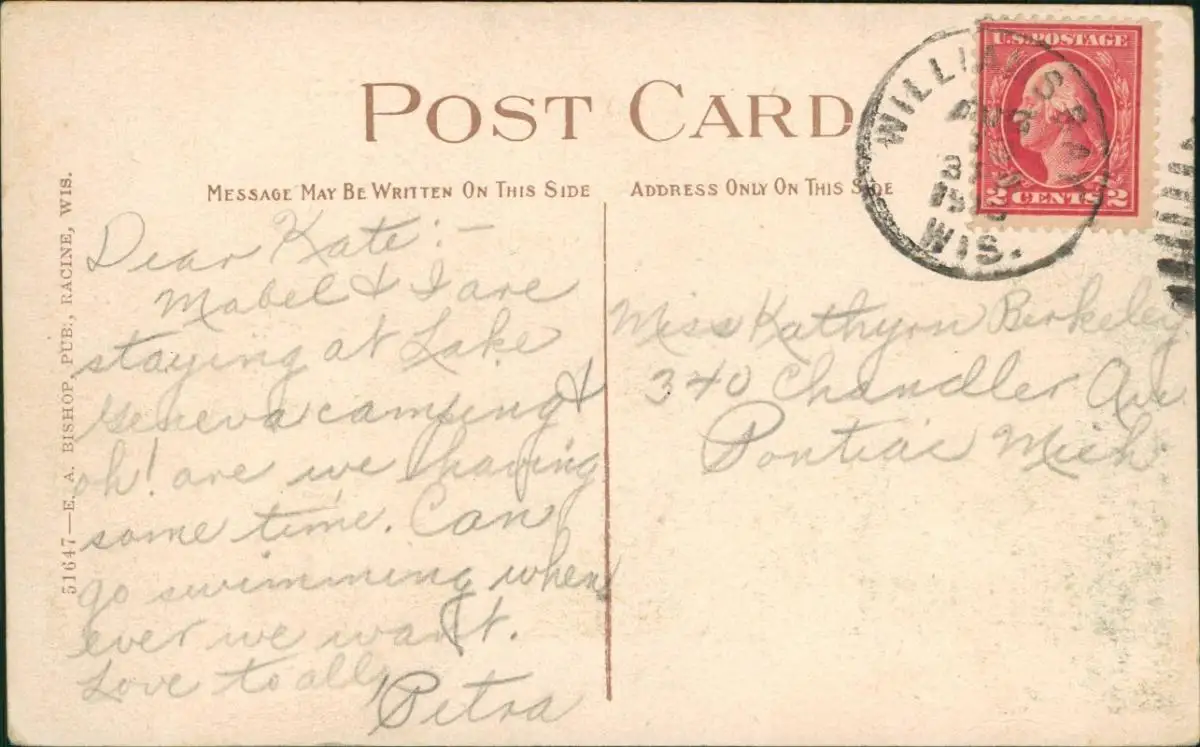 POST CARD
MESSAGE MAY BE WRITTEN ON THIS SIDE
ADDRESS ONLY ON THIS SIDE
U.S. POSTAGE
2 CENTS 2
WILLIAMS BAY
AUG
WIS.
51647—E. A. BISHOP, PUB., RACINE, WIS.
Dear Kate:—
Mabel & I are
staying at Lake
Geneva camping &
oh! are we having
some time. Can
go swimming when
ever we want.
Love to all,
Petra
Miss Kathyrn Berkeley
340 Chandler Ave
Pontiac Mich